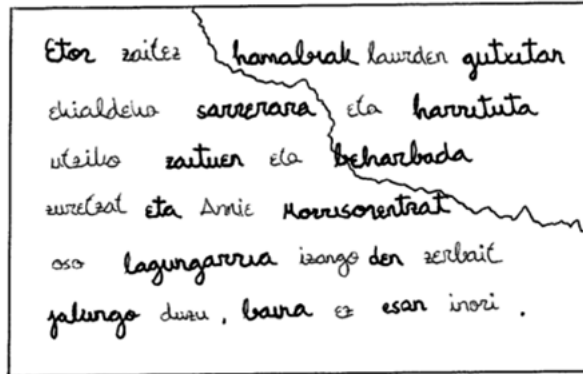 Etor zaitez hamabiak laurden gutxitan
ekialdeko sarrerara eta harrituta
utziko zaituen eta beharbada
zuretzat eta Annie Morrisonentzat
oso lagungarria izango den zerbait
jakingo duzu, baina ez esan inori.